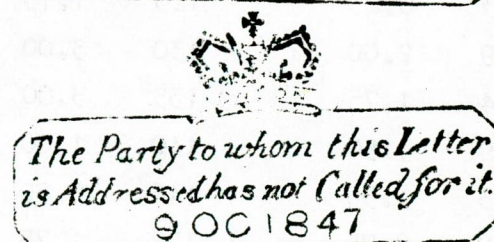 The Party to whom this Letter
is Addressed has not Called for it.
9 OC 1847